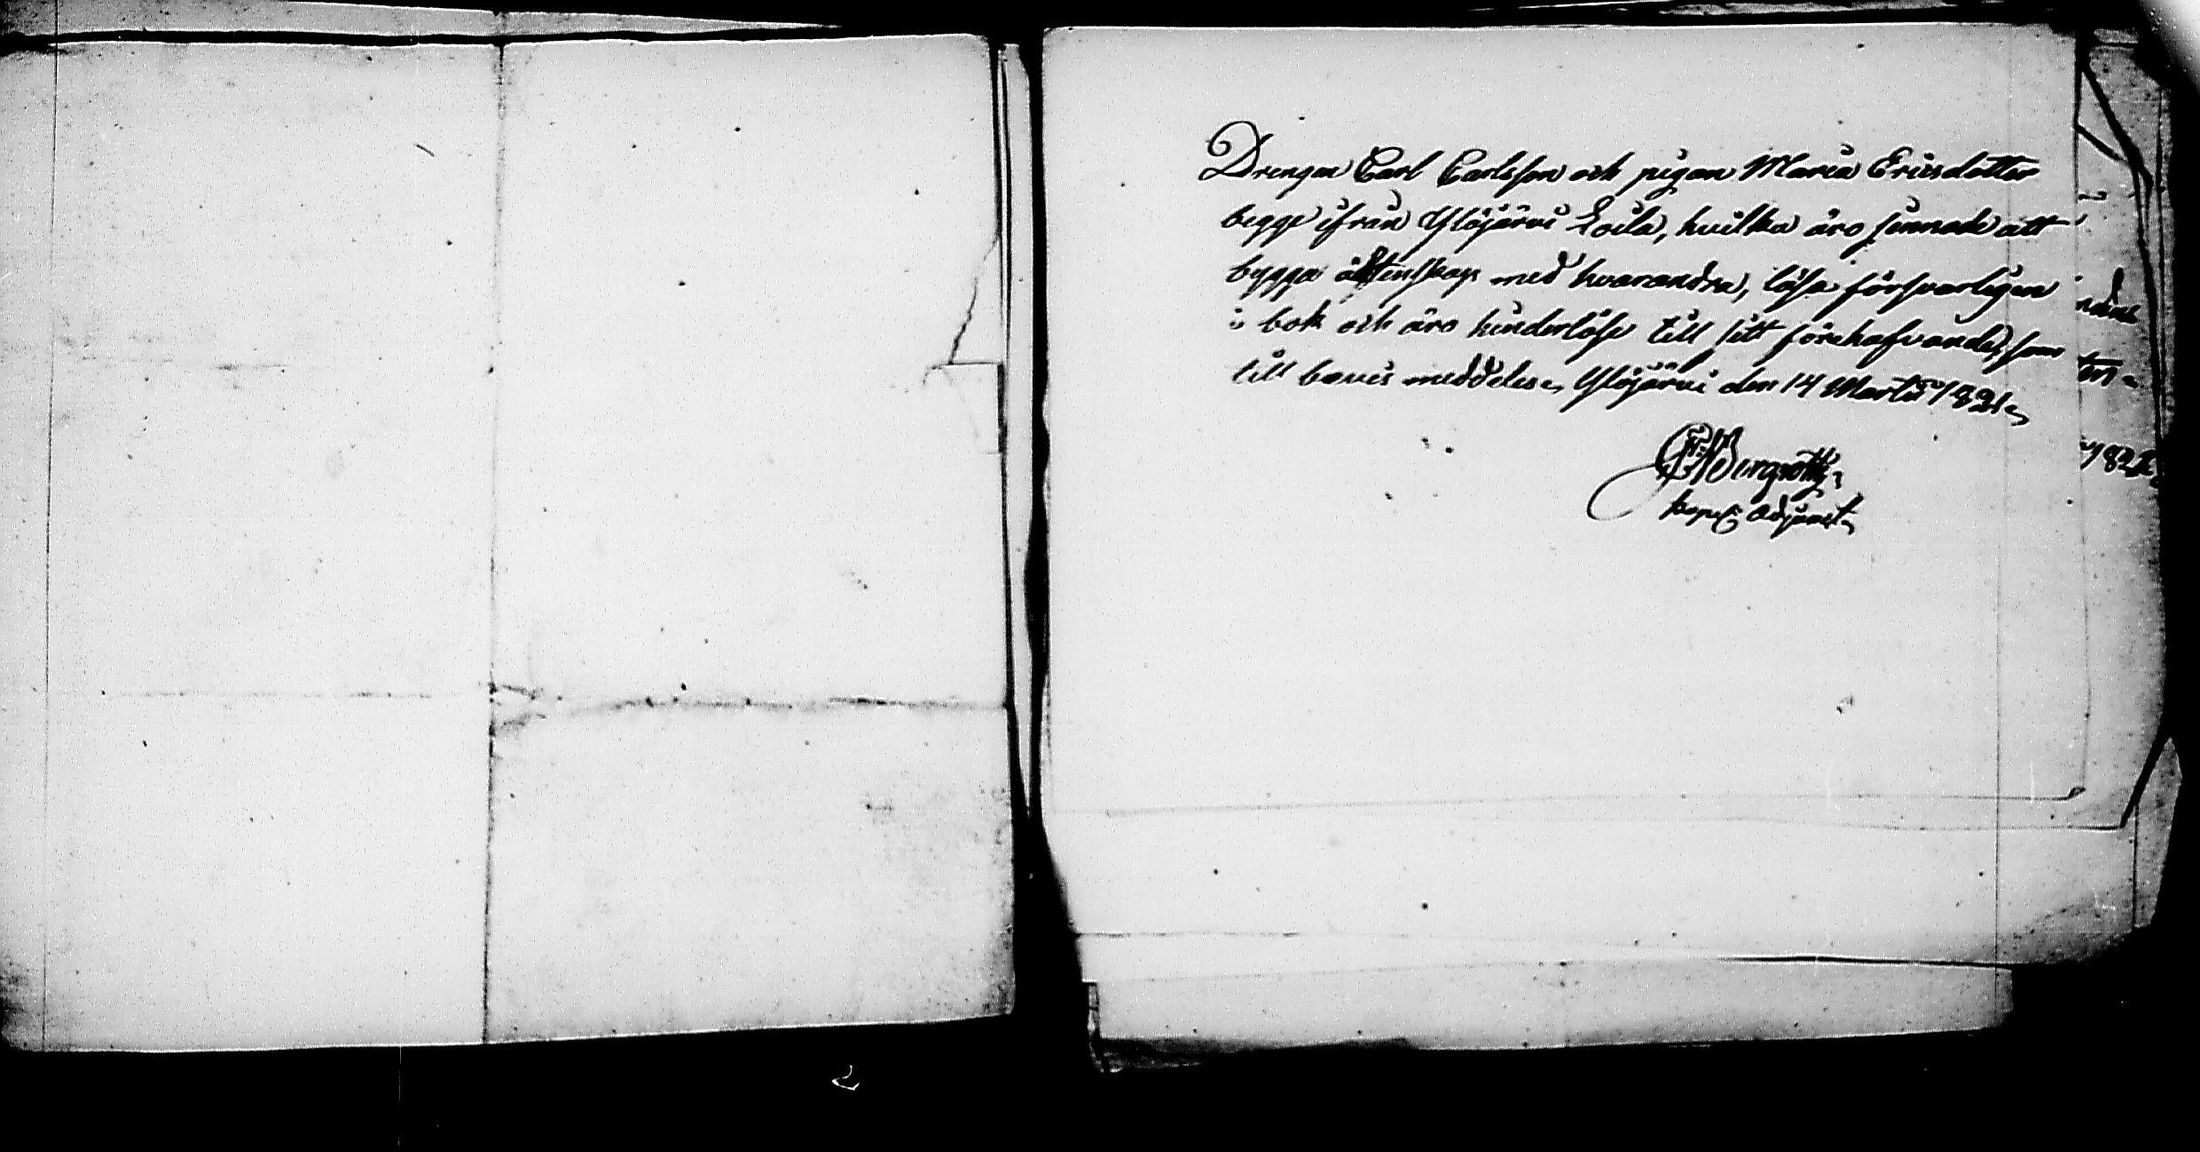 Drengen Carl Carlsson och pigan Maria Ericsdotter
begge ifrån Ylöjärvi Soila, hvilka äro sinnade att
bygga äktenskap med hvarandra, läsa försvarligen
i bok och äro hinderlöse till sitt förehafvande, som
till bevis meddeles, Ylöjärvi den 14 Martii 1821
Bergroth
Capell Adjunct
nde
ten
182
2